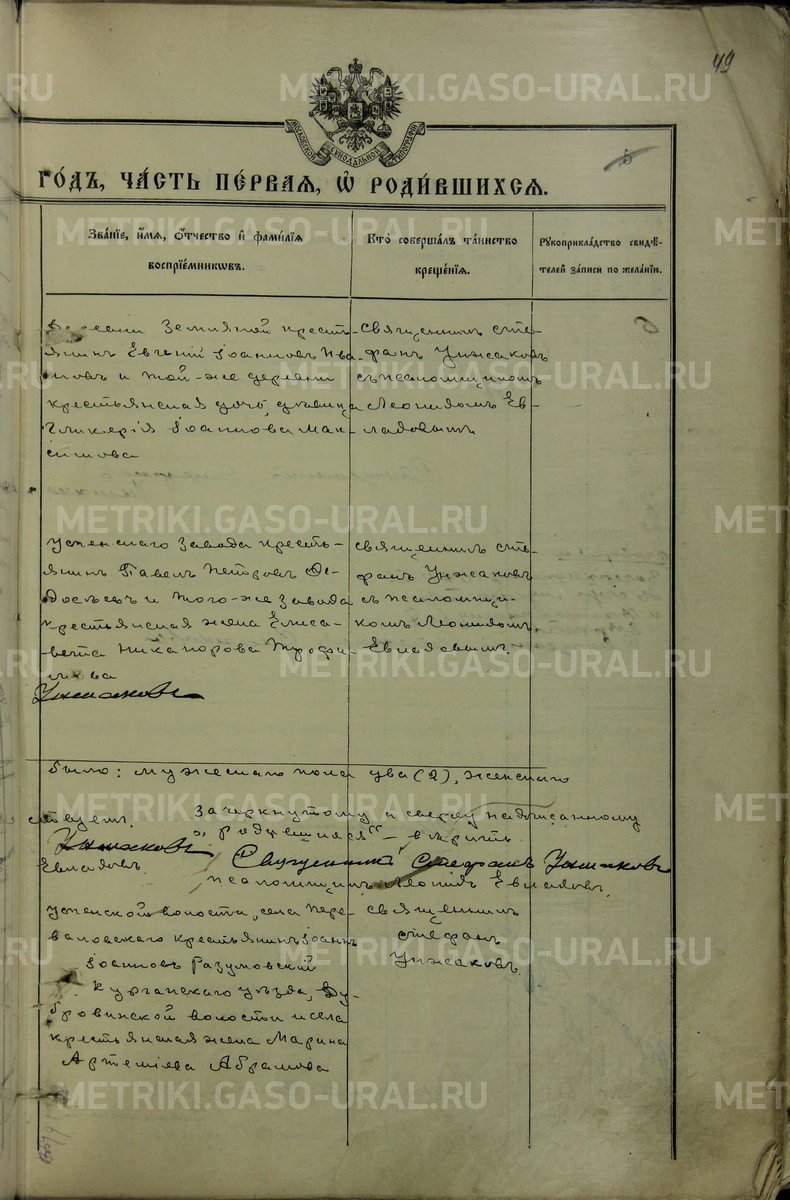 49
METRIKI.GASO-URAL.RU
МОСКОВСКОЙ СѴНОДАЛЬНОЙ ТИПОГРАФІИ
ГО́ДЪ, ЧА́СТЬ ПЕ́РВАѦ, Ѡ҆ РОДИ́ВШИХСѦ.
Зва́нїе, и҆́мѧ, ѻ҆́тчество и҆ фами́лїѧ
воспрїе́мникѡвъ.
Кто̀ соверша́лъ та́инство
креще́нїѧ.
Рꙋкоприкла́дство свидѣ́-
телей за́писи по жела́нїю.
Деревни Земляной кресть-
янинъ Евгеній Іоанновъ Ива-
новъ и той-же деревни
крестьянская дочь, дѣвица
Гликерія Іоаннова Мак-
симова
Священникъ Сте-
фанъ Унжаковъ
съ псаломщикомъ
Леонидомъ Ев-
ладовымъ
Успенскаго завода кресть-
янинъ Павелъ Петровъ Ѳе-
досѣевъ и того-же завода
крестьянская жена Елиса-
вета Никанорова Трофи-
мова
Священникъ Сте-
фанъ Унжаковъ
съ псаломщи-
комъ Леонидомъ
Евладовымъ.
Унжаковъ
было: мужескаго пола два (2), женскаго
Зачеркнутому и сверху надписанному
„родившіяся“ – вѣрить
Унжаковъ
Священникъ Стефанъ Унжаковъ
Евладовъ.
Псаломщикъ Леонидъ Евладовъ.
Успенской волости, села Пере-
валовскаго крестьянинъ Іоаннъ
Іоанновъ Разумовскій
Курганскаго уѣзда, Ду-
бровинской волости и села
крестьянская жена Марина
Артеміева Абрамова
Священникъ
Стефанъ
Унжаковъ